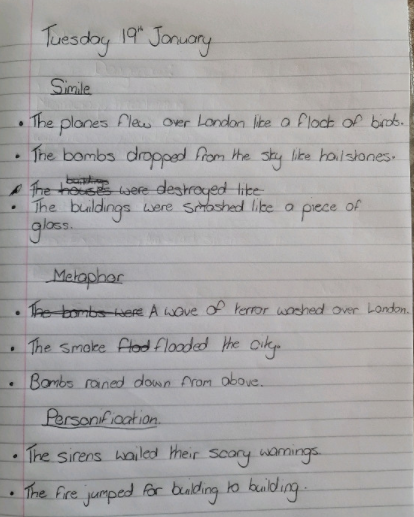 Tuesday 19th January
Simile
• The planes flew over London like a flock of birds.
• The bombs dropped from the sky like hailstones.
The houses were destroyed like
• The buildings were smashed like a piece of
glass.
Metaphor
• The bombs were A wave of terror washed over London.
• The smoke flod flooded the city.
• Bombs rained down from above.
Personification
• The sirens wailed their scary warnings
• The fire jumped for building to building.